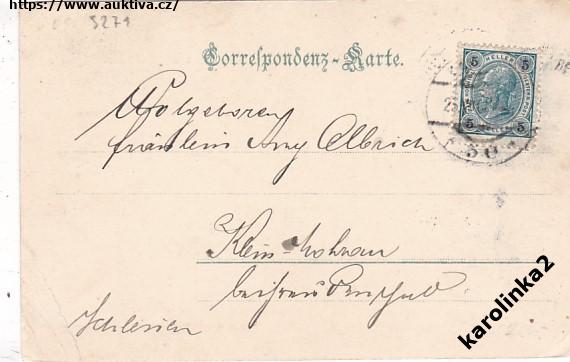 https://www.auktiva.cz/
5271
Correspondenz-Karte.
5 HELLER 5
5 HELLER 5
Wolgeboren
Fräulein Amy Olbrich
Klein-Mohrau
bei Freudenthal
Schlesien
karolinka2